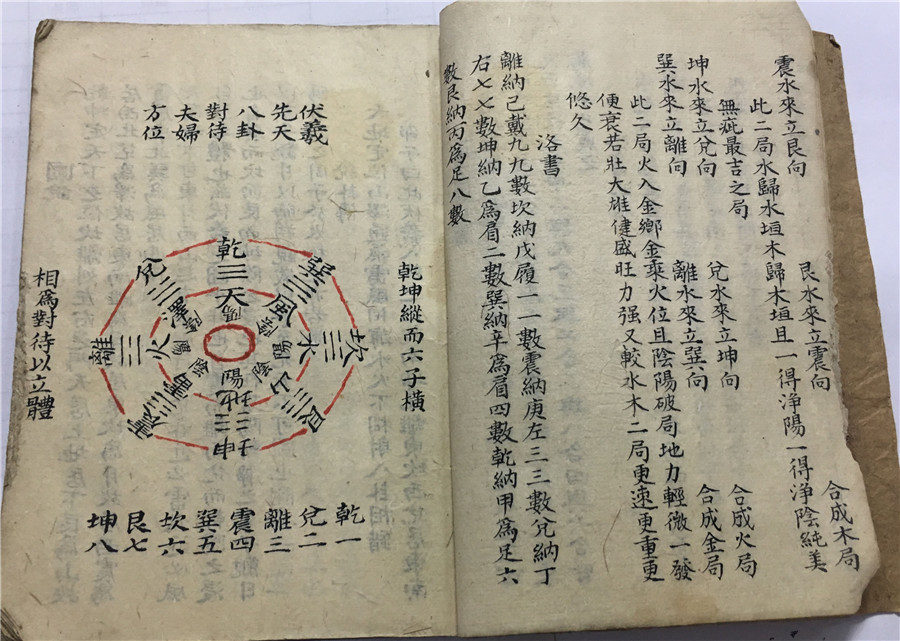 震水來立艮向 艮水來立震向 合成木局
此二局水歸水垣木歸木垣且一得淨陽一得淨陰純美
無疵最吉之局
坤水來立兌向 兌水來立坤向 合成火局
巽水來立離向 離水來立巽向 合成金局
此二局火入金鄉金乘火位且陰陽破局地力輕微一發
便衰若壯大雄健盛旺力强又較水木二局更速更重更
悠久
洛書
離納己戴九九數坎納戊履一一數震納庚左三三數兌納丁
右七七數坤納乙爲肩二數巽納辛爲肩四數乾納甲爲足六
數艮納丙爲足八數
乾坤縱而六子橫
伏羲
先天
八卦
對待
夫婦
方位
乾☰天
巽☴風
坎☵水陽
艮☶山
坤☷地陽
震☳雷陰
離☲火陽
兌☱澤陰
乾一
兌二
離三
震四
巽五
坎六
艮七
坤八
相爲對待以立體